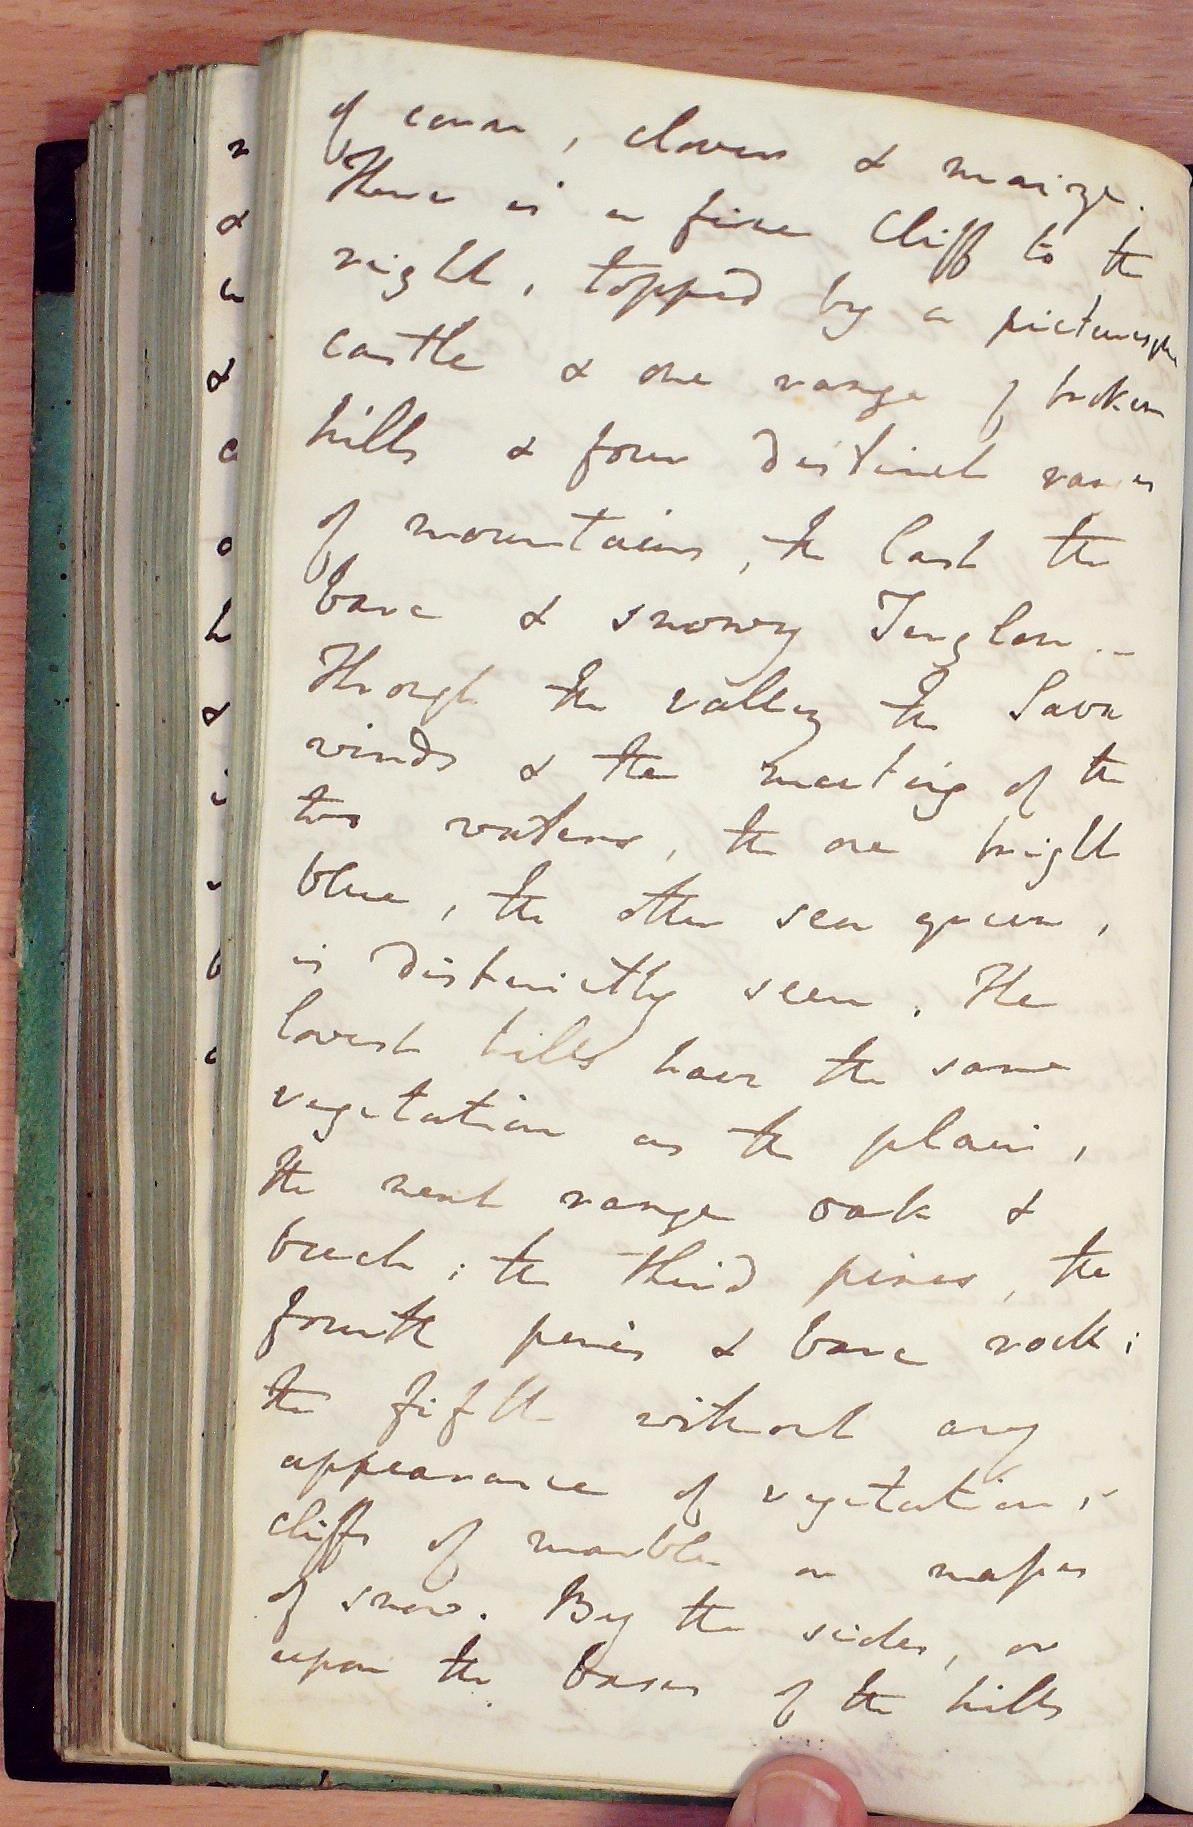 of corn, clover & maize.
There is a fine cliff to the
right, topped by a picturesque
castle & one range of broken
hills & four distinct ranges
of mountains, the last the
bare & snowy Terglou --
Through the valley the Sava
winds & the meeting of the
two waters, the one bright
blue, the other sea green,
is distinctly seen. The
lowest hills have the same
vegetation as the plain,
the next range oak &
beech; the third pines, the
fourth pines & bare rock;
the fifth without any
appearance of vegetation,
cliffs of marble or masses
of snow. By the sides, or
upon the bases of the hills